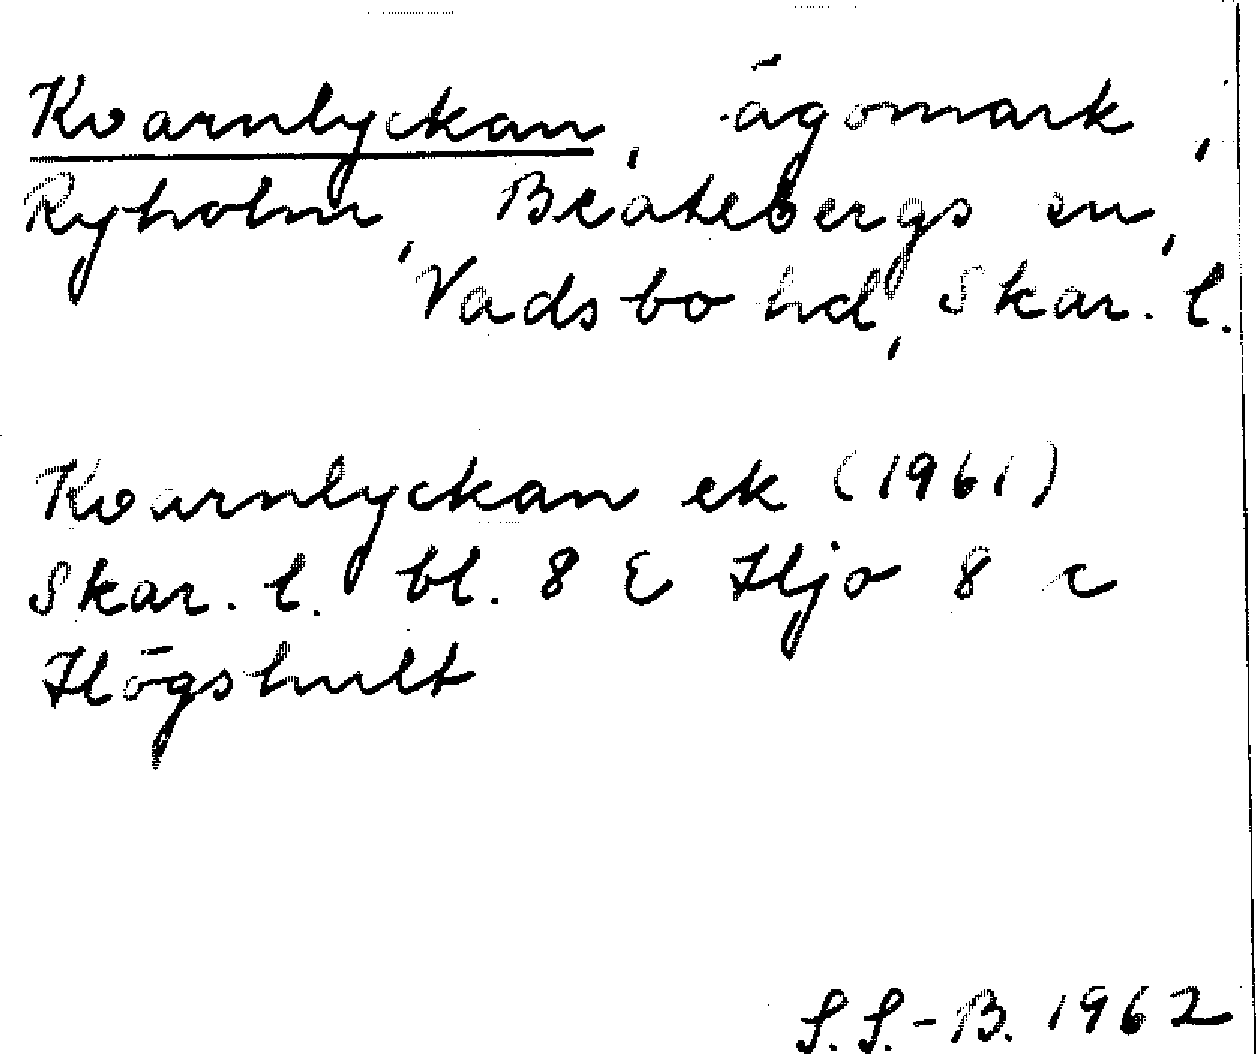 Kvarnlyckan, ägomark,
Ryholm, Beatebergs sn,
Vadsbo hd, Skar. l.
Kvarnlyckan ek (1961)
Skar. l. bl. 8 E Hjo 8 c
Högshult
S.S.-B. 1962